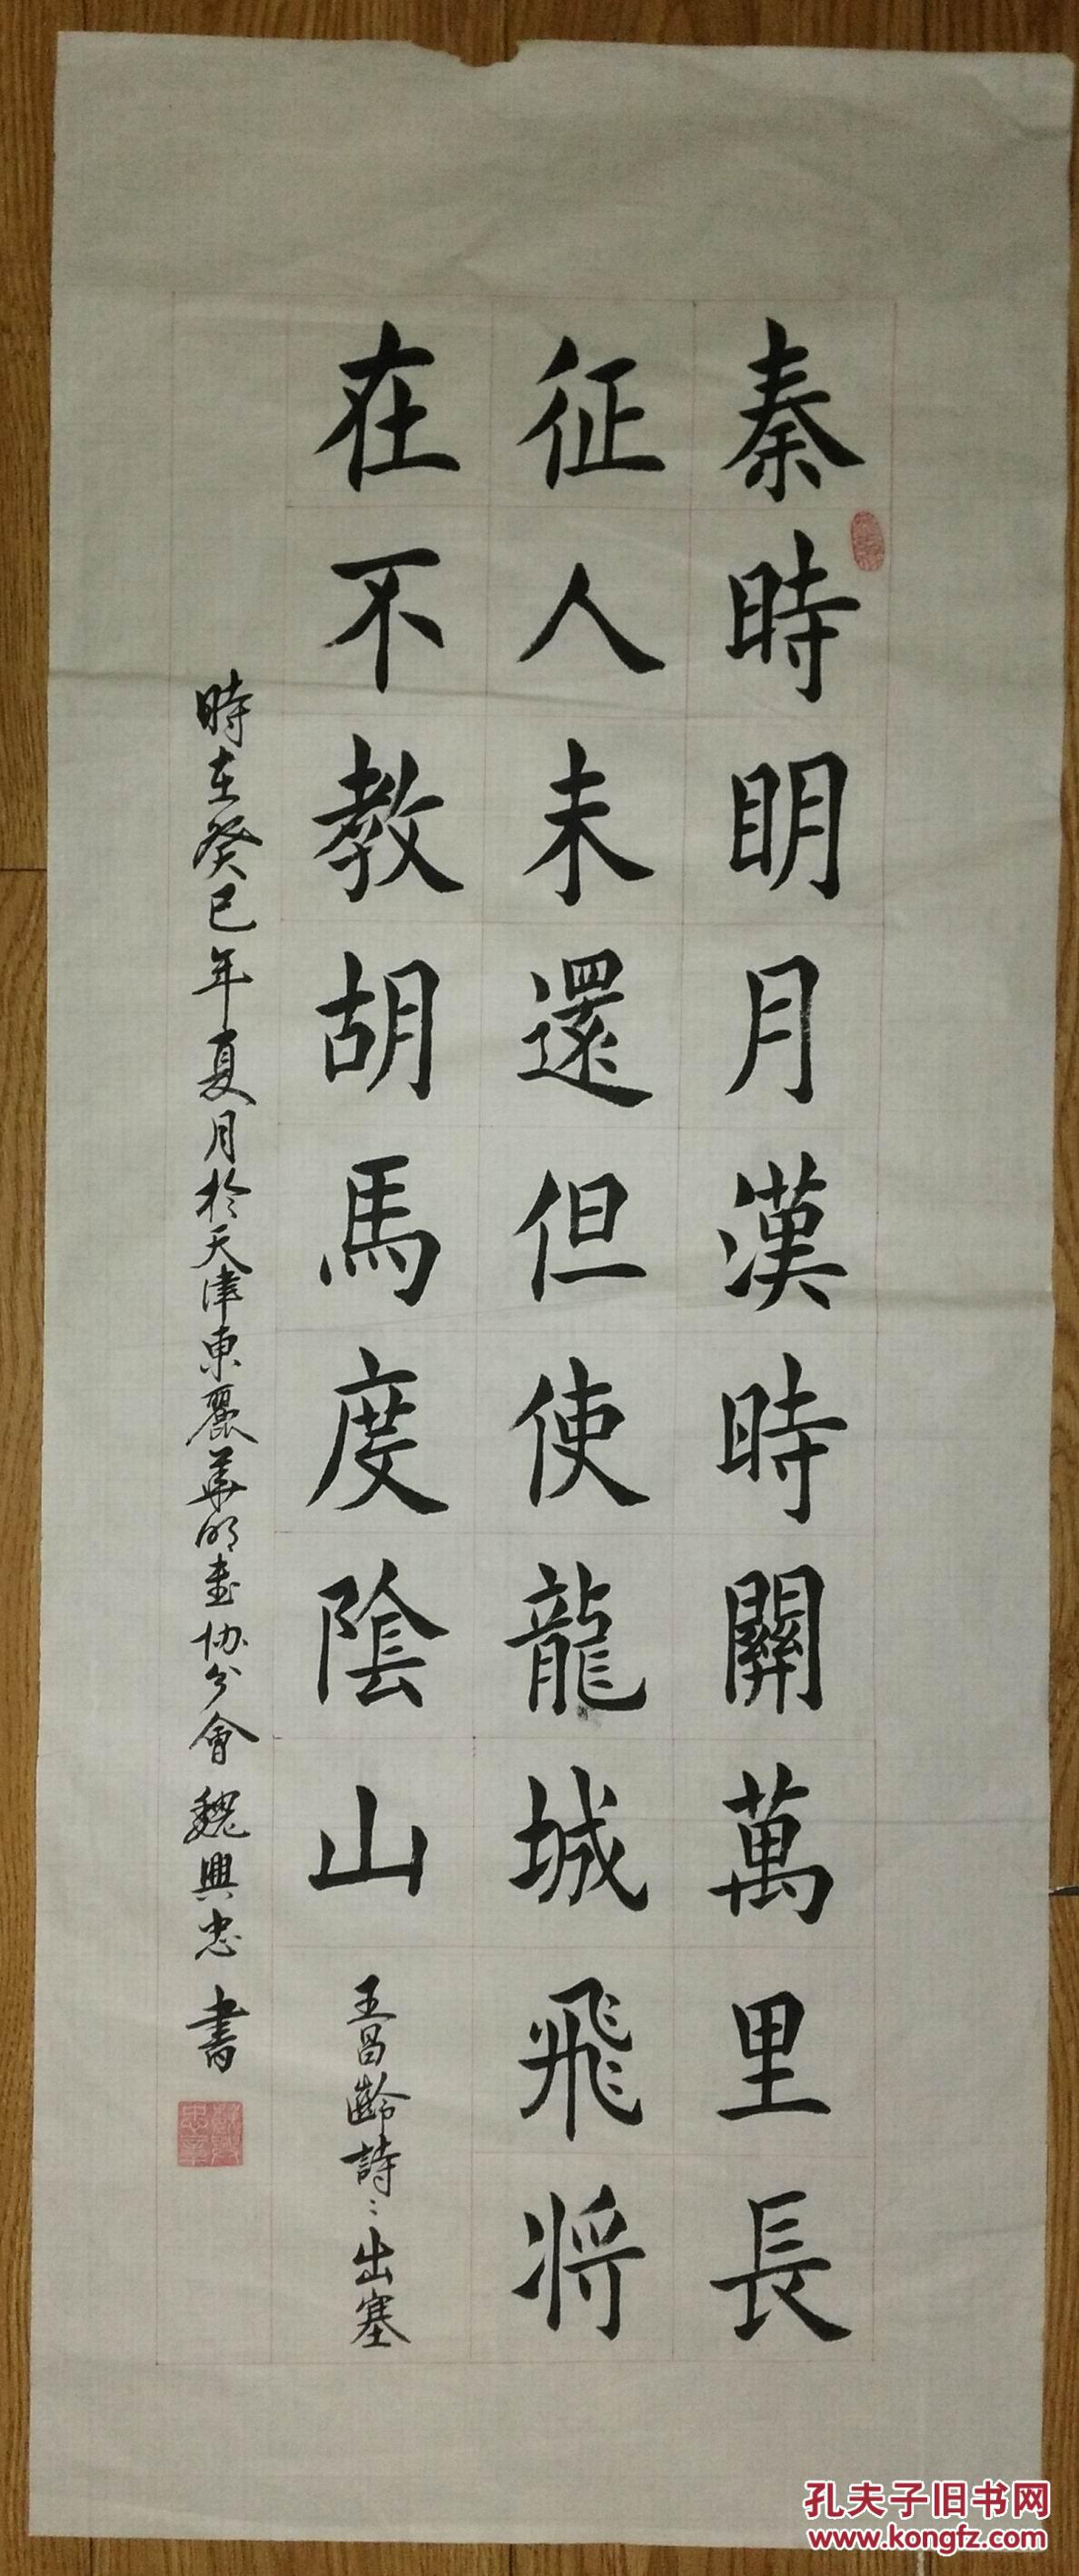 秦時明月漢時關萬里長
征人未還但使龍城飛将
在不教胡馬度陰山
王昌齡詩:出塞
時在癸巳年夏月於天津東麗華明書协分會魏興忠書
孔夫子旧书网
www.kongfz.com